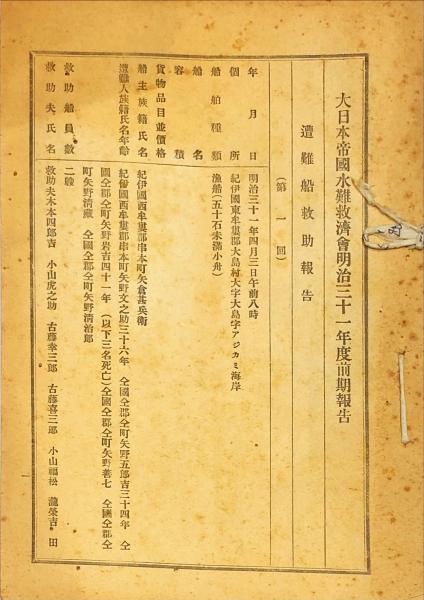 大日本帝國水難救濟會明治三十一年度前期報吿
遭難船救助報吿
（第一回）
年月日 明治三十一年四月三日午前八時
個所 紀伊國東牟婁郡大島村大字大島字アジカミ海岸
船舶種類 漁船（五十石未滿小舟）
船名
容積
貨物品目並價格
船主族籍氏名 紀伊國西牟婁郡串本町矢倉甚兵衛
遭難人族籍氏名年齡 紀伊國西牟婁郡串本町矢野文之助三十六年 仝國仝郡仝町矢野五郞吉三十四年 仝
國仝郡仝町矢野岩吉四十一年（以下三名死亡）仝國仝郡仝町矢野善七 仝國仝郡仝
町矢野淸藏 仝國仝郡仝町矢野淸治郞
救助船員數 二艘
救助夫氏名 救助夫木本四郞吉 小山虎之助 古藤幸三郞 古藤喜三郞 小山福松 瀧榮吉 田